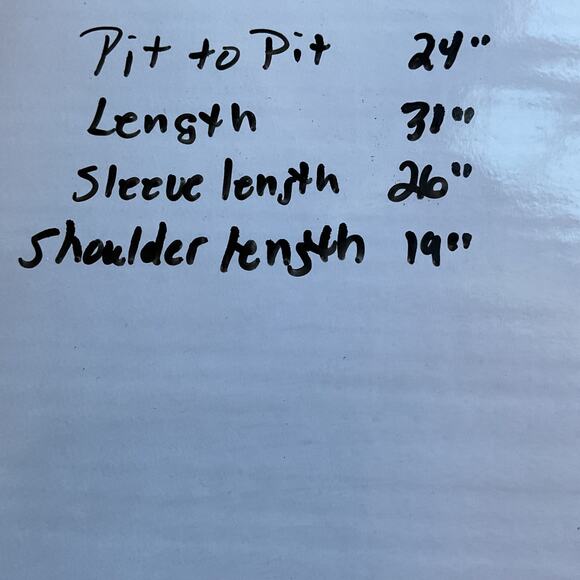 Pit to Pit 24"
Length 31"
Sleeve length 26"
Shoulder length 19"